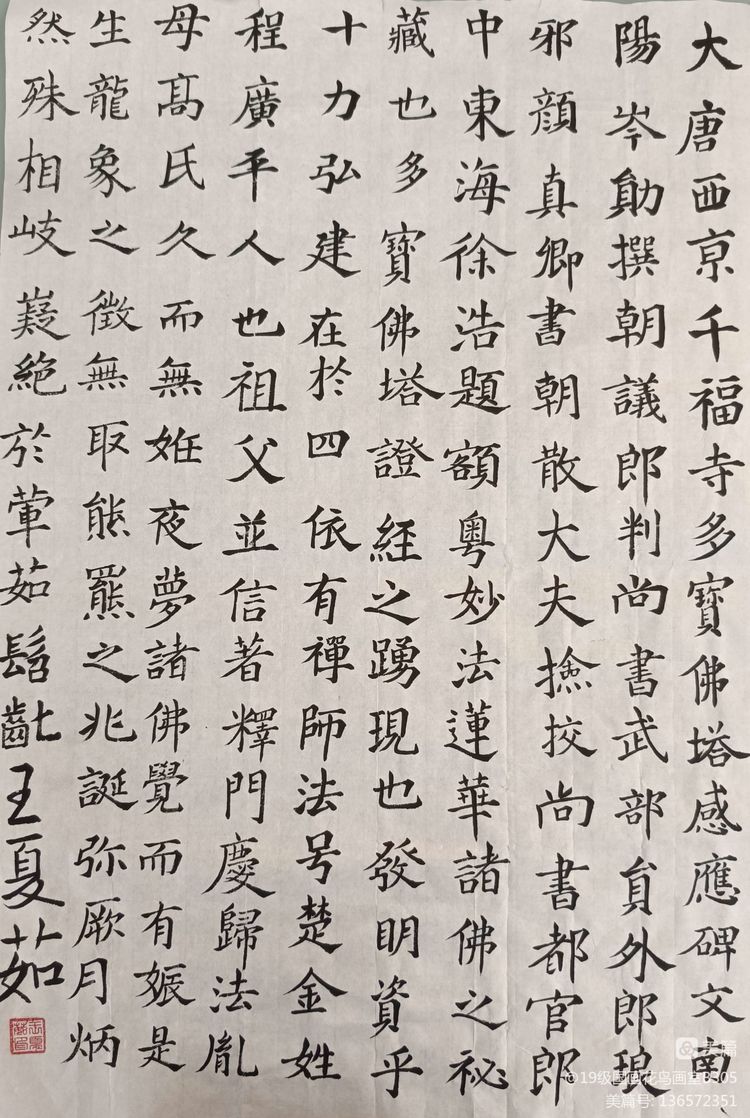 大唐西京千福寺多寶佛塔感應碑文南
陽岑勛撰朝議郎判尚書武部員外郎琅
邪顏真卿書朝散大夫撿挍尚書都官郎
中東海徐浩題額粵妙法蓮華諸佛之祕
藏也多寶佛塔證經之踴現也發明資乎
十力弘建在於四依有禪師法号楚金姓
程廣平人也祖父並信著釋門慶歸法胤
母高氏久而無姙夜夢諸佛覺而有娠是
生龍象之徵無取熊羆之兆誕弥厥月炳
然殊相岐嶷絕於葷茹髫齔王夏茹
美篇
©19级国画花鸟画室B305
美篇号: 136572351